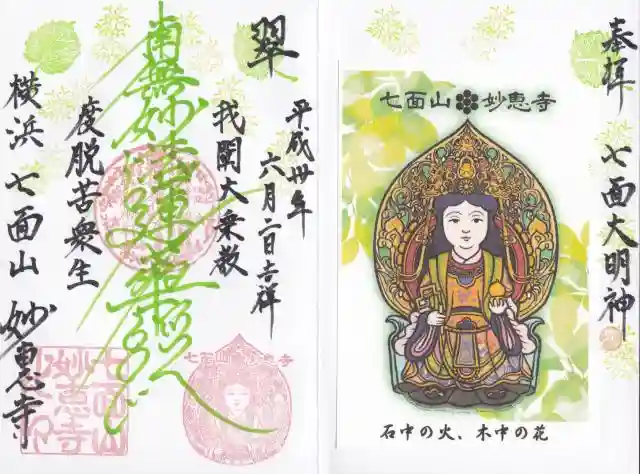 奉拝
七面大明神
七面山 妙恵寺
石中の火、木中の花
翠
平成卅年
六月二日吉祥
我闡大乗教
南無妙法蓮華経
度脱苦衆生
横浜 七面山 妙恵寺
七面山妙恵寺
七面山
妙恵寺